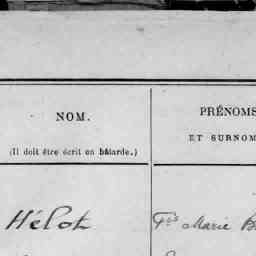 NOM. PRÉNOMS
(Il doit être écrit en bâtarde.) ET SURNOM
Hélot Fçs Marie B